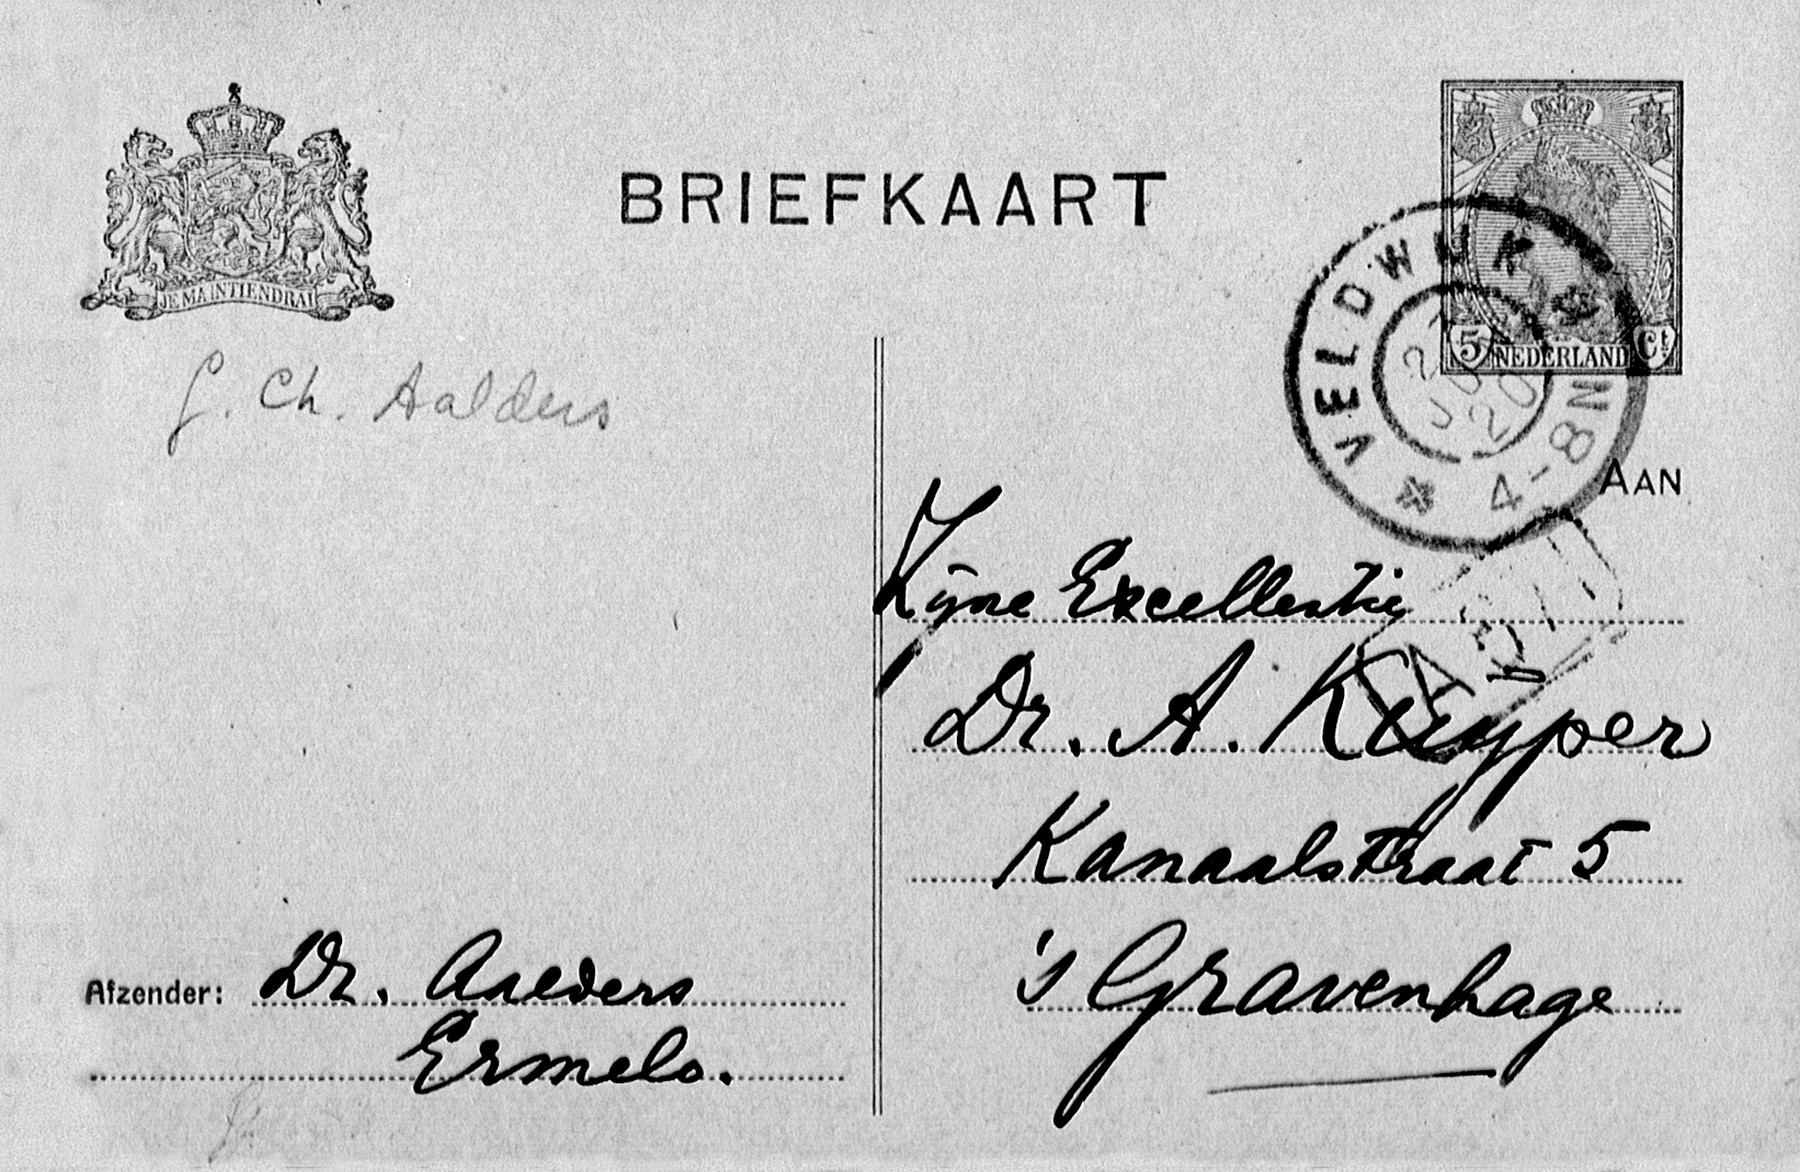 BRIEFKAART
JE MAINTIENDRAI
5 NEDERLAND Ct
VELDWIJK
4-8N
20
G. Ch. Aalders
AAN
Zijne Excellentie
Dr. A. Kuyper
Kanaalstraat 5
's Gravenhage
Afzender: Dr. Aalders
Ermelo.